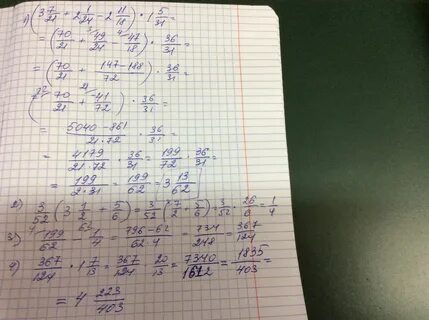 1) (3 7/21 + 2 1/24 - 2 11/18) · 1 5/31 =
= (70/21 + 49/24 - 47/18) · 36/31 =
= (70/21 + 147-188/72) · 36/31 =
(70/21 + -41/72) · 36/31 =
= 5040-861/21·72 · 36/31 =
= 4179/21·72 · 36/31 = 199/72 · 36/31 =
= 199/2·31 = 199/62 = 3 13/62
2) 3/52 (3 1/2 + 5/6) = 3/52 (7/2 + 5/6) = 3/52 · 26/6 = 1/4
3) 199/62 - 1/4 = 796-62/62·4 = 734/248 = 367/124
4) 367/124 · 1 7/13 = 367/124 · 20/13 = 7340/1612 = 1835/403 =
= 4 223/403